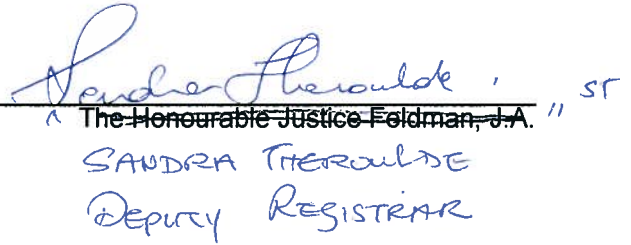 Sandra Theroulde
The Honourable Justice Feldman, J.A. " ST
SANDRA THEROULDE
DEPUTY REGISTRAR